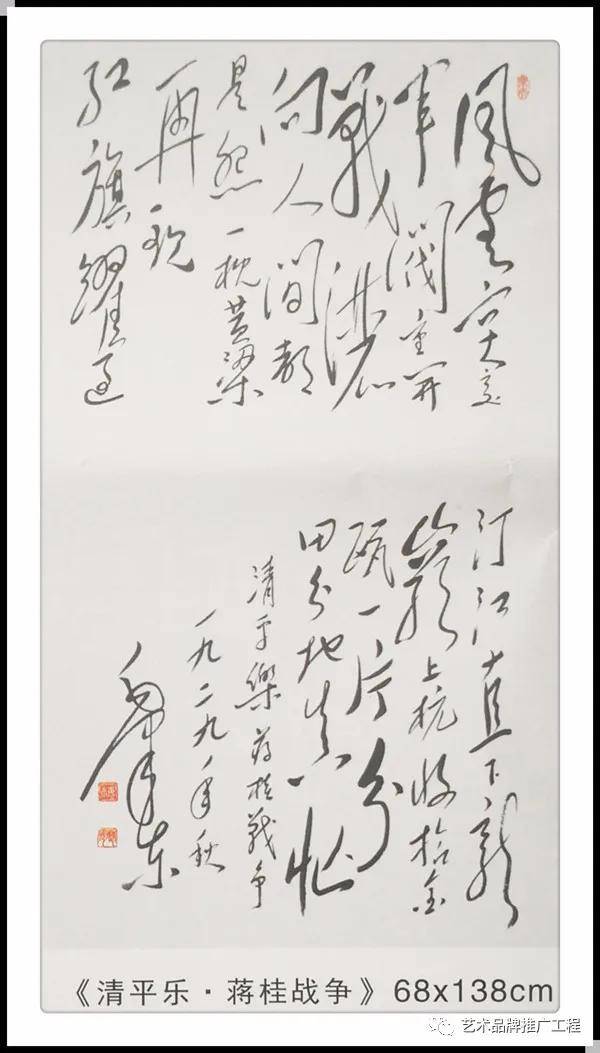 風雲突变
軍閥重开
戰灑
向人间都
是怨一枕黄粱
再现
红旗躍过
汀江直下龙
巖上杭收拾金
瓯一片分
田分地真忙
清平樂 蒋桂战争
一九二九年秋
毛泽东
《清平乐·蒋桂战争》68x138cm
艺术品牌推广工程